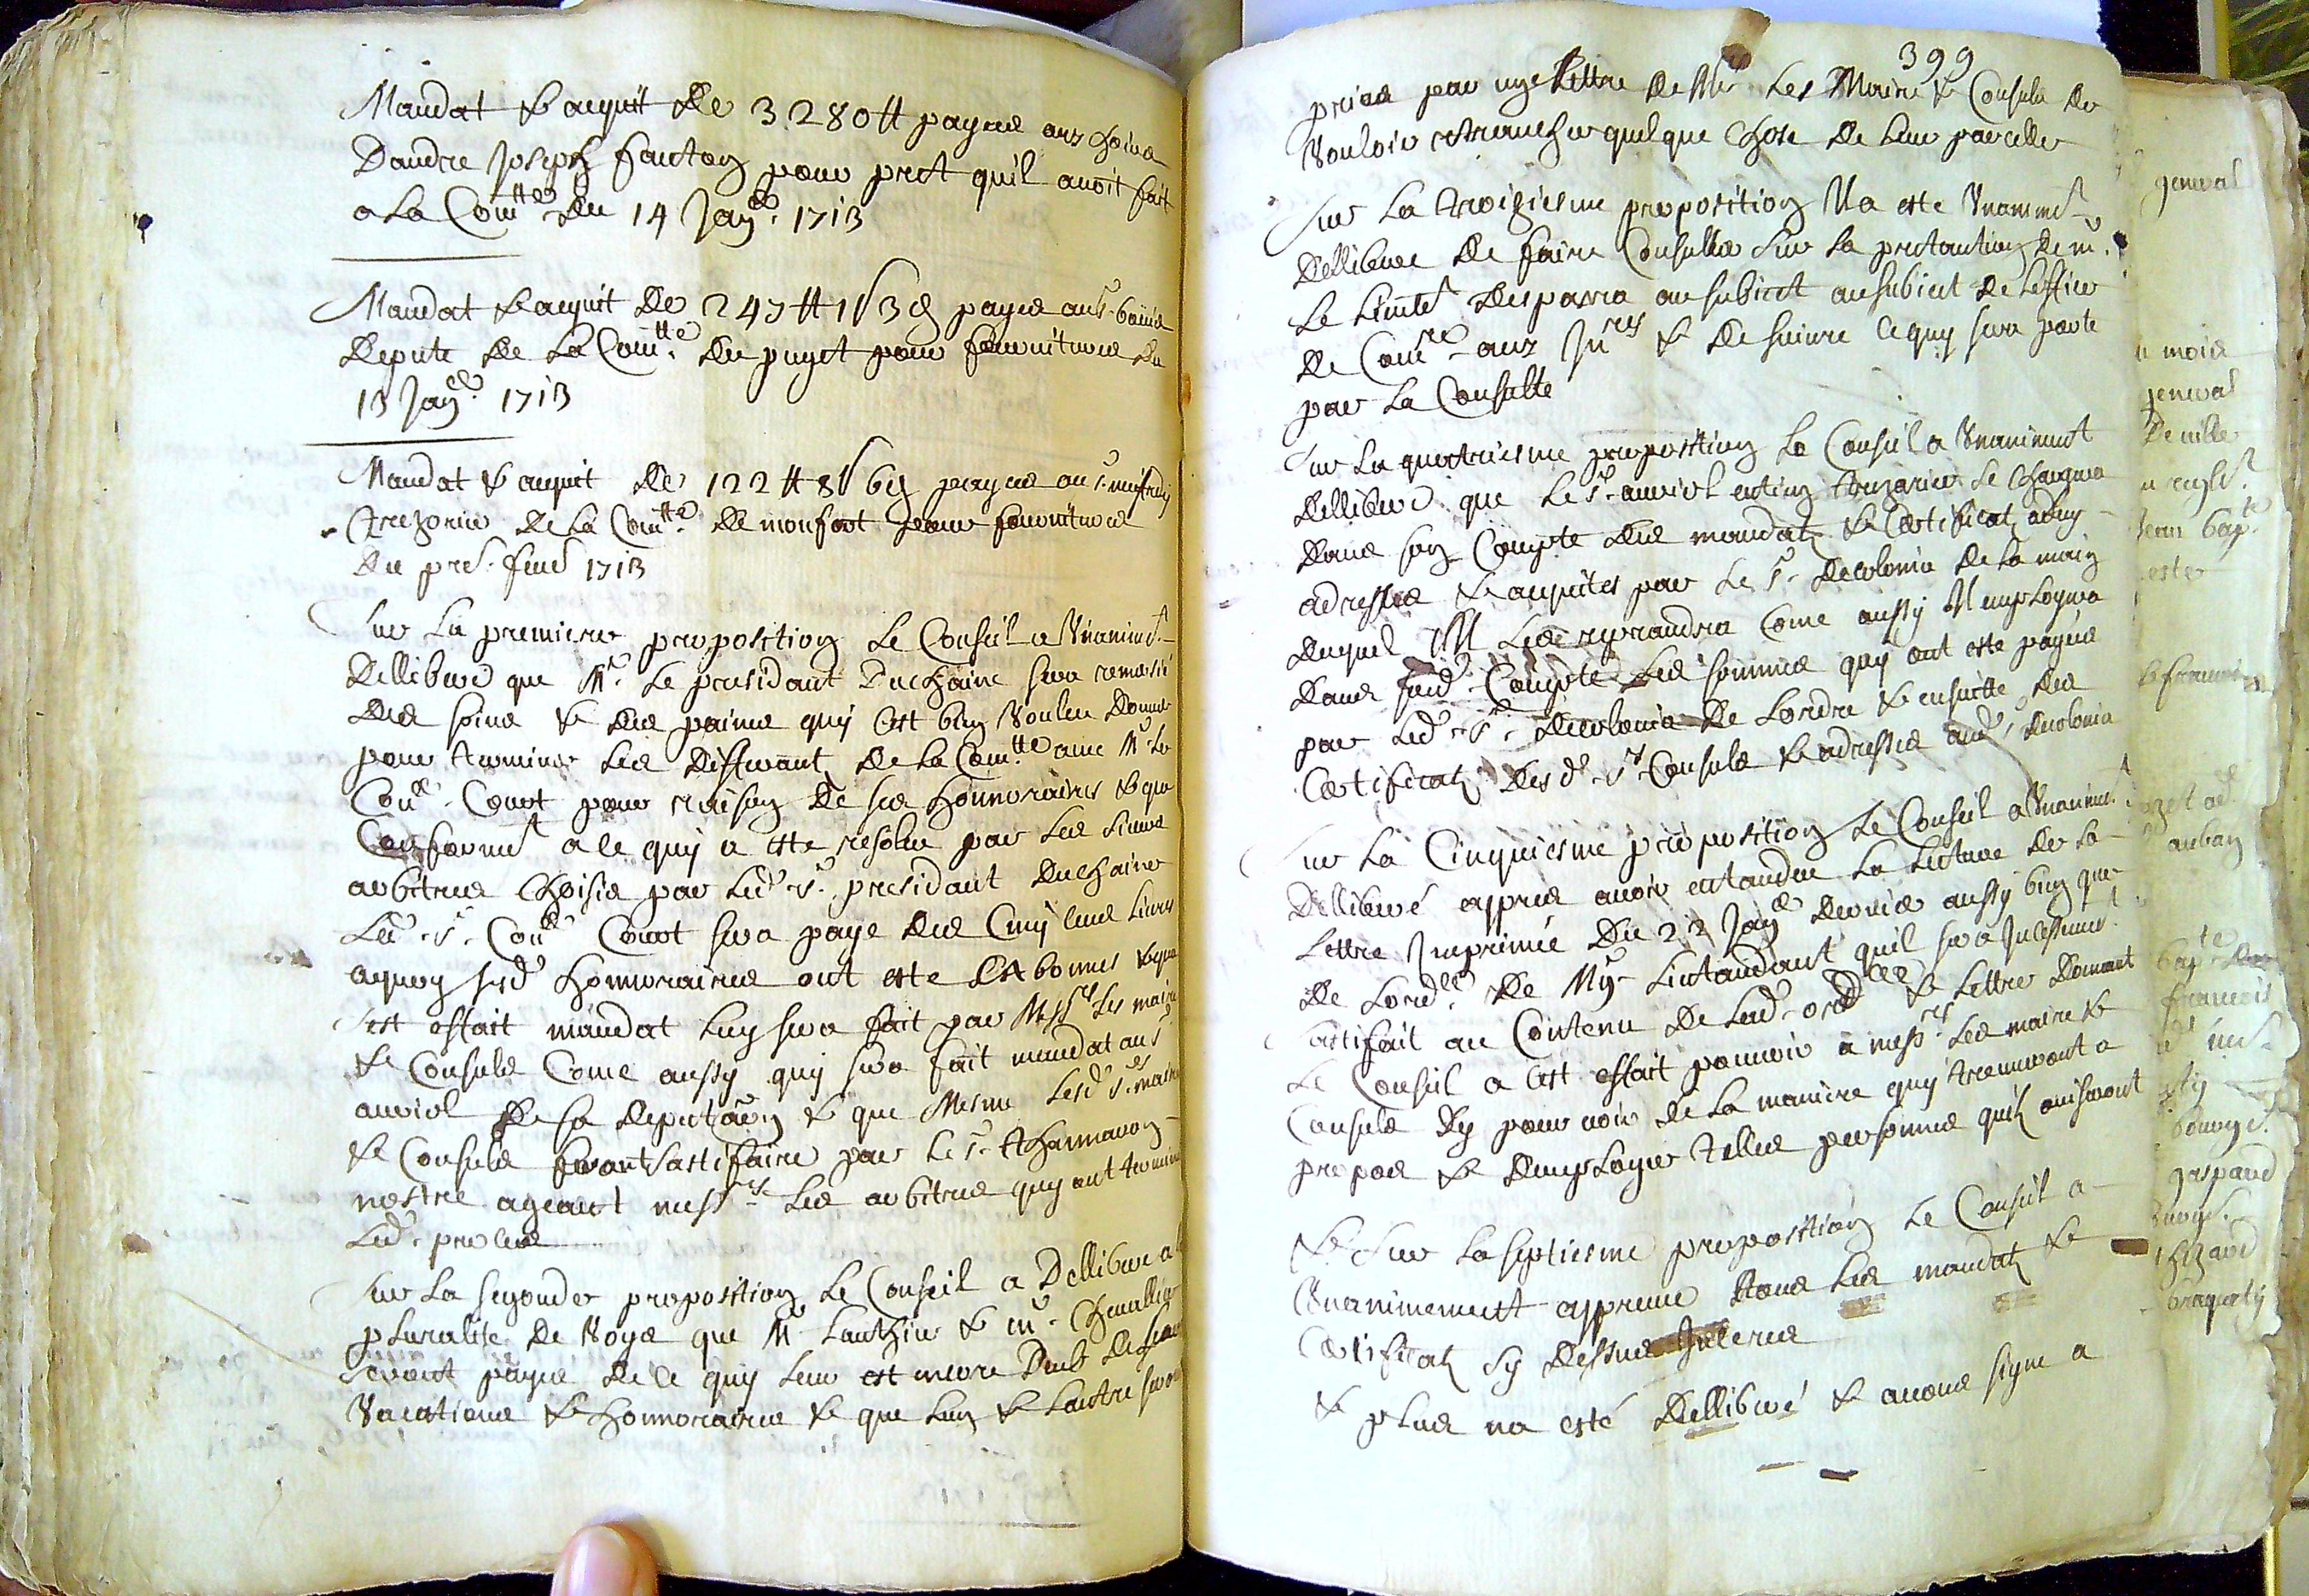 Mandat & aquit De 3280 tt payee aux hoirs
Dandre Joseph fanton pour prest quil avoit fait
a la Com.tte du 14 Jan.er 1713
Mandat & aquit De 247 tt 1 s 3 d payes au s.r
Depute De la Com.tte Du puget pour fournitures du
13 Jan.er 1713
Mandat & aquit De 122 tt 8 s 6 d payes au s.r
trezorier De la Com.tte De monfort pour fournitures
Du 1713
Sur La premiere proposition Le Conseil a Unanim.t
Dellibere que M.r Le presidant Duchaine sera remersie
Des soins & des paines quy cest bien Voulu Donner
pour terminer Les Differant De la Com.tte avec M.r Le
Con.er Couot pour raison De ses honnoraires & que
Conform.t a ce quy a este resolu par Les sieurs
arbitres Choisis par Led. s.r presidant Duchaine
Led. s.r Con.er Couot sera paye des Cinq Cens Livres
aquoy sesd. honnoraires ont este & que
cest effait mandat Luy sera fait par Mess.rs Les maire
& Consuls Come aussy quy sera fait mandat au s.r
auriol De sa Deputaon & que Mesme Lesd. s.rs maire
& Consuls feront satisfaire par Le s.r
nostre ageant mess.rs Les arbitres quy ont termine
Led. proces
Sur La segonde proposition Le Conseil a Dellibere a la
pluralite De Voys que M.r Lauthier & m.r Chevallier
seront payes De ce quy Leur est encore Deub De Leurs
Vacations & honnoraires & que Lun & Lautre seront
399
pries par une Lettre De M.rs Les Maire & Consuls De
Vouloir retrancher quelque Chose De Leur parcelle
Sur La troisiesme proposition Il a este Unanim.t
Dellibere De faire Consulter sur La pretantion De m.r
Le Lieut.t Desparra au subiect au subiect De Loffice
De Com.re aux In.res & De suivre ce quy sera porte
par La Consulte
Sur La quatriesme proposition Le Conseil a Unanimem.t
Dellibere que Le s.r auriol entien trezorier Se Chargera
Dans son Compte des mandatz & Certificatz
adresses & aquites par Le s.r Decolonia De La main
duquel Il Les reprandra Come aussy Il employera
Dans sond. Compte Les sommes quy ont este payees
par Led. s.r Decolonia De Lordre & ensuitte des
Certificatz Desd. s.rs Consuls & adresses aud. s.r Decolonia
Sur La Cinquiesme proposition Le Conseil a Unanim.t
Dellibere appres avoir entandeu La Lecture De La
Lettre Imprimee Du 22 Jan.er Dernier aussy bien que
De Lord.ce De Mgr Lintandant quil sera Incessem.t
satisfait au Contenu De Lad. ord.ce & Lettre Donnant
Le Conseil a cest effait pouvoir a mess.rs Les maire &
Consuls Dy pourvoir De La maniere quy treuveront a
propos & Demployer telles personnes quilz aviseront
& Sur La septiesme proposition Le Conseil a
Unanimement appreuve tous Les mandatz &
Certificatz sy Dessus Inceres
& plus na este Dellibere & avons signe a
general
mois
general
De ville
Jean bap.te
este
auban
bap.te
francois
gaspard